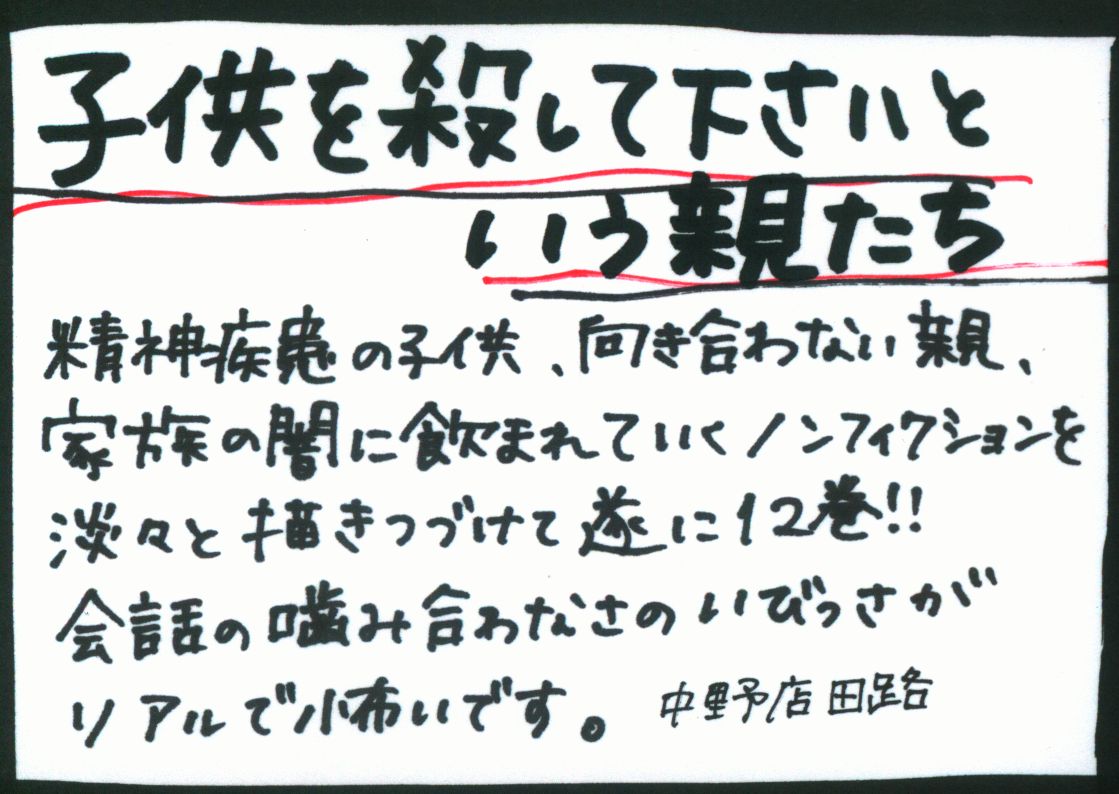 子供を殺して下さいと
いう親たち
精神疾患の子供、向き合わない親、
家族の闇に飲まれていくノンフィクションを
淡々と描きつづけて遂に12巻!!
会話の噛み合わなさのいびつさが
リアルで怖いです。 中野店 田路